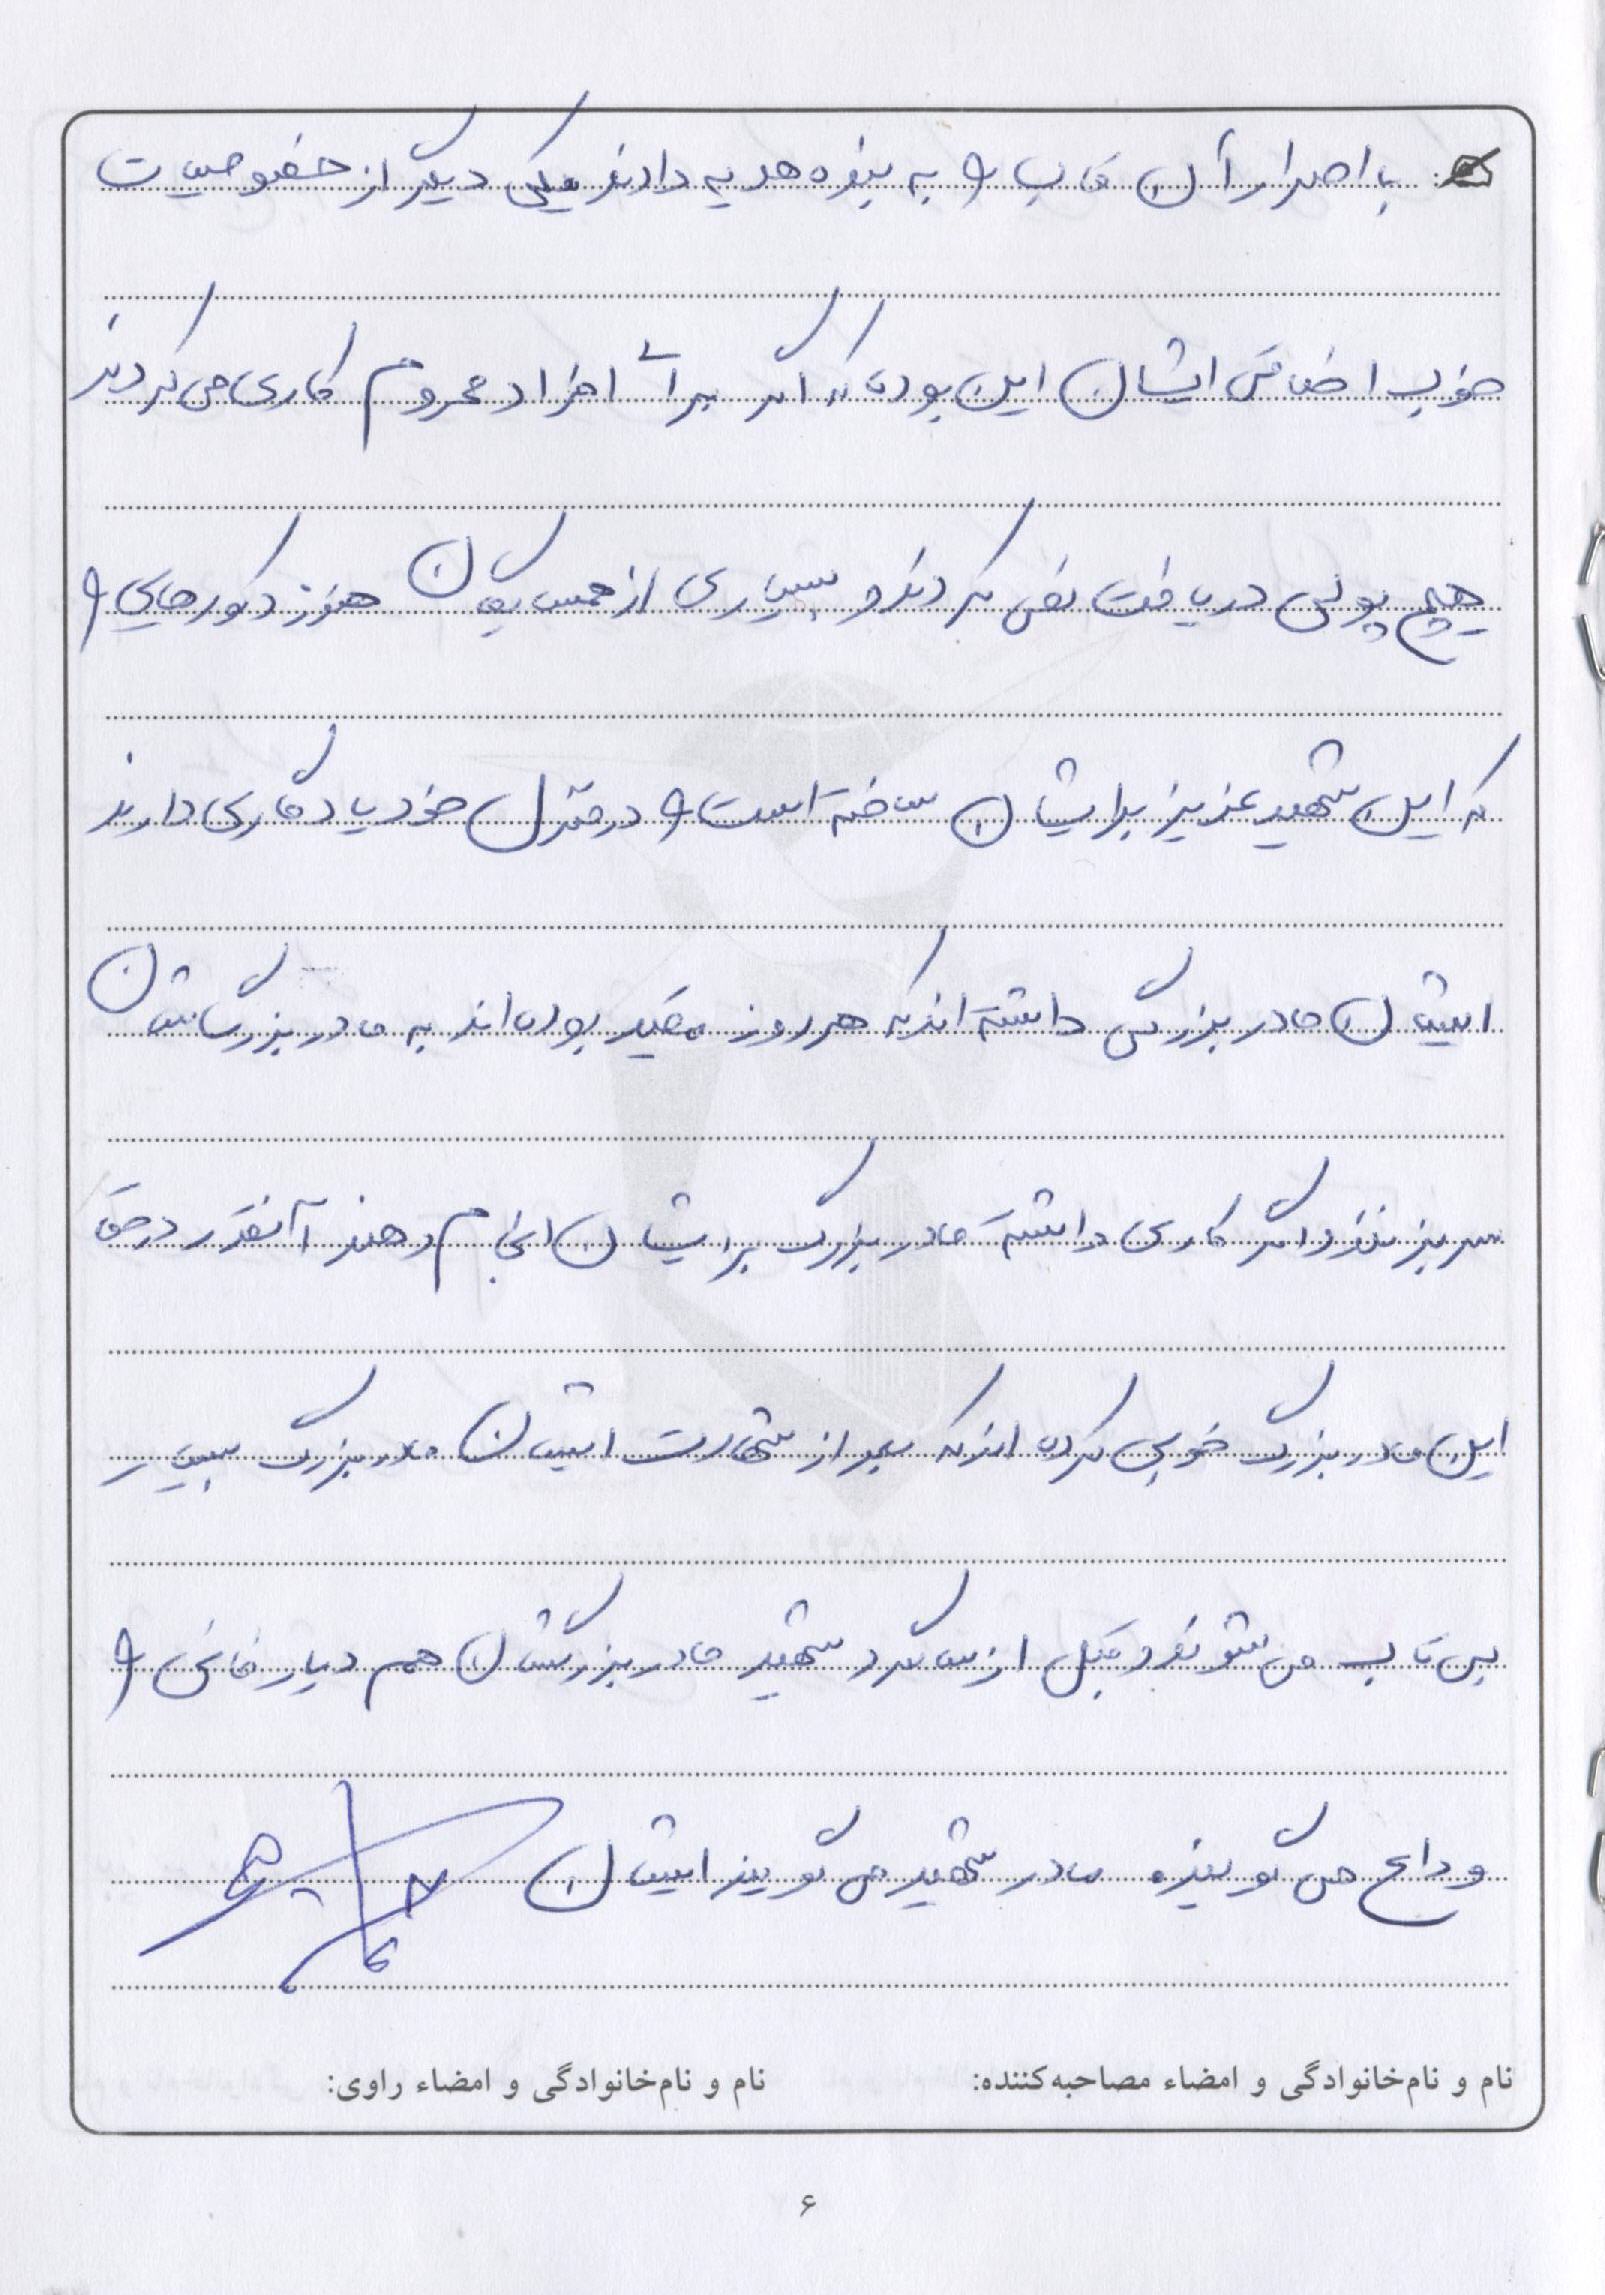 با اصرار آن قاب را به بنده هدیه دادند یکی دیگر از خصوصیات
خوب اخلاقی ایشان این بود که اگر برای افراد محروم کاری می کردند
هیچ پولی دریافت نمی کردند و بسیاری از همسایگان هنوز دکورهایی را
که این شهید عزیز برایشان ساخته است را در منزل خود یادگاری دارند
ایشان مادر بزرگی داشته اند که هر روز مقید بوده اند به مادر بزرگشان
سر بزنند و اگر کاری داشته مادر بزرگ برایشان انجام دهند آنقدر در حق
این مادر بزرگ خوبی کرده اند که بعد از شهادت ایشان مادر بزرگ بسیار
بی تاب می شوند و قبل از سالگرد شهید مادر بزرگشان هم دیار فانی را
وداع می گویند مادر شهید می گویند ایشان
نام و نام‌خانوادگی و امضاء مصاحبه‌کننده: نام و نام‌خانوادگی و امضاء راوی:
۶